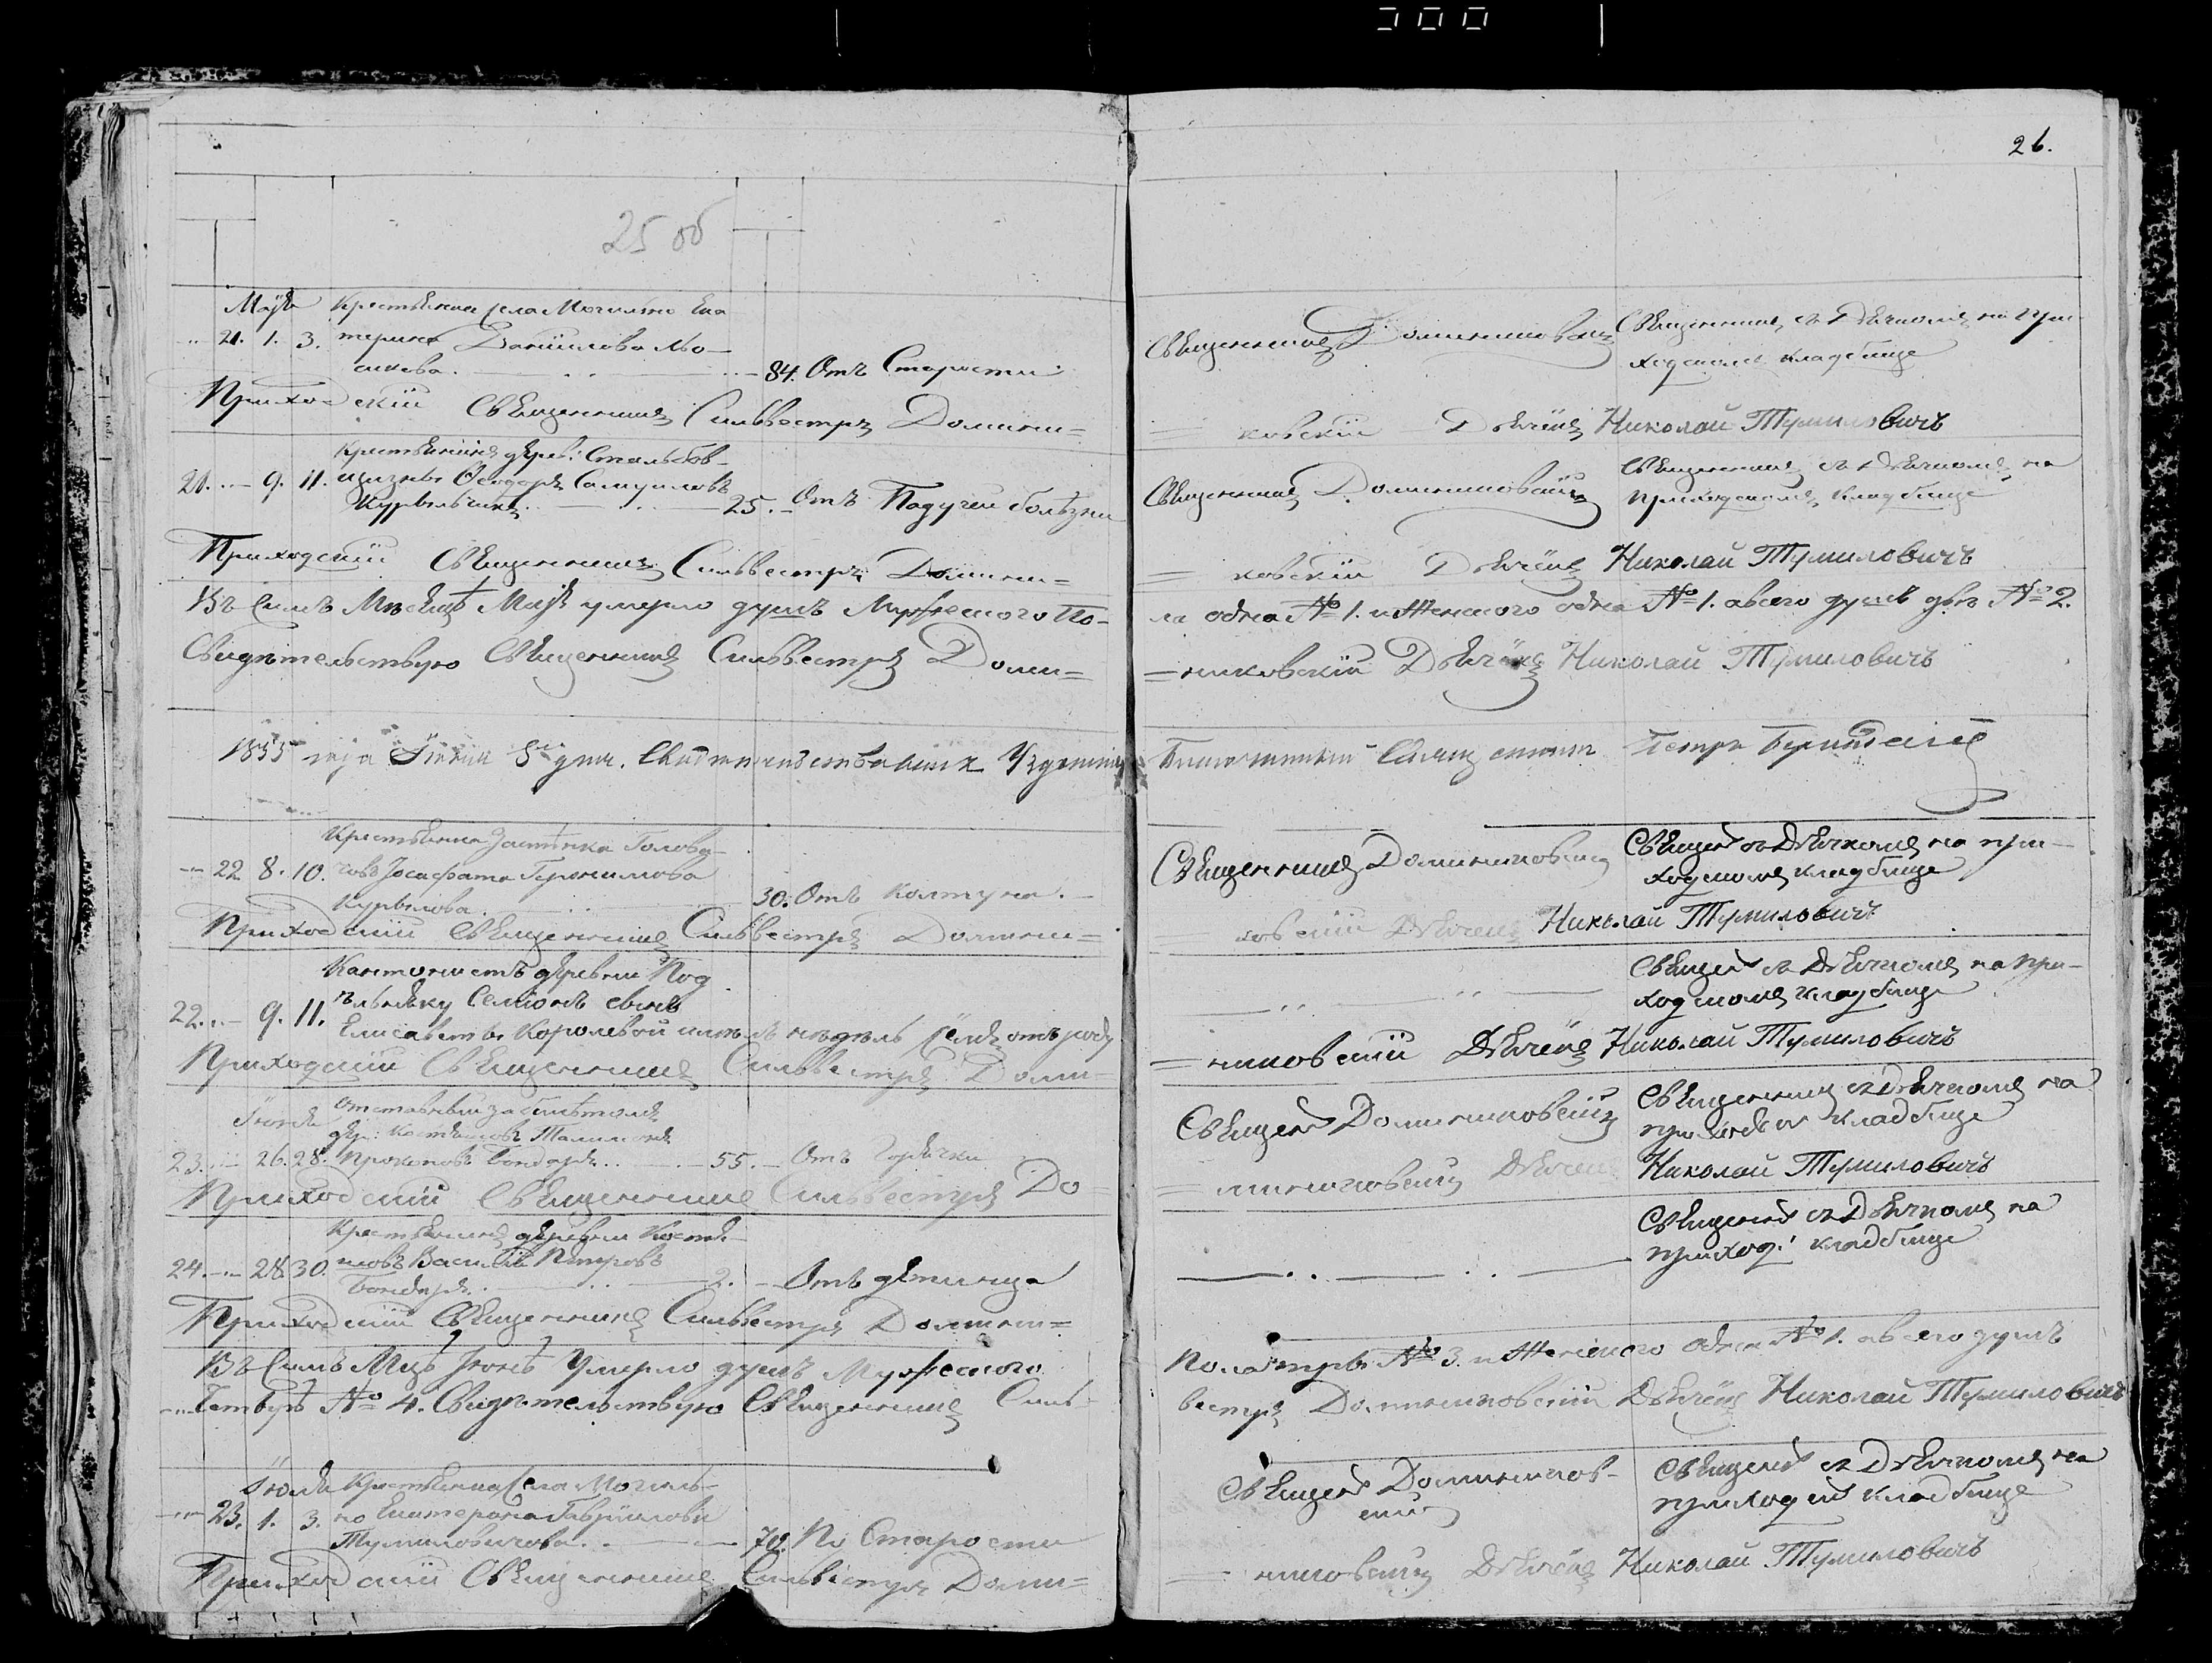 26.
25 об
Маія Крестьянка села Могильно Ека
21. 1. 3. терина Даніилова Мо-
84. Отъ Старости
Священникъ Доминиковскій
Священникъ съ Дьячкомъ на при-
ходскомъ кладбище
Приходскій Священникъ Сильвестръ Домини=
=ковскій Дьячекъ Николай Тумиловичъ
Крестьянинъ дерев:
21. 9. 11. Ѳеодоръ Самуиловъ
25. Отъ Падучей болѣзни
Священникъ Доминиковскій
Священникъ съ Дьячкомъ на
приходскомъ кладбище
Приходскій Священникъ Сильвестръ Домини=
=ковскій Дьячекъ Николай Тумиловичъ
Въ Семъ Мѣсяцѣ Маіѣ умерло душъ Мужескаго По-
ла одна № 1. и Женского одна № 1. а всего душъ двѣ № 2.
Свидѣтельствую Священникъ Сильвестръ Доми=
=никовскій Дьячекъ Николай Тумиловичъ
1855 года Іюня 8 дня. Свидѣтельствовалъ
Благочинный Священникъ Петръ
Крестьянка Застѣнка Голова-
22 8. 10. човъ Іосафата Геронимова
Курылова 30. Отъ колтуна.
Священникъ Доминиковскій
Священ съ Дьячкомъ на при-
ходскомъ кладбище
Приходскій Священникъ Сильвестръ Домини=
ковскій Дьячекъ Николай Тумиловичъ
Кантонистъ деревни Под
22. 9. 11. Семіонъ сынъ
Елисаветы Королевой недѣль отъ роду
Священ съ Дьячкомъ на при-
ходскомъ кладбище
Приходскій Священникъ Сильвестръ Доми-
=никовскій Дьячекъ Николай Тумиловичъ
Іюня Отставный за билетомъ
дер:
23. 26. 28. Прокоповъ Бондарь 55. Отъ Горячки
Священ Доминиковскій
Священникъ съ Дьячкомъ на
приходск кладбище
Приходскій Священникъ Сильвестръ До
=миниковскій Дьячекъ Николай Тумиловичъ
Крестьянинъ деревни Костю-
24. 28 30. ковъ Василій Петровъ
Бондарь 2. Отъ дѣтинца
Священ съ Дьячкомъ на
приход: кладбище
Приходскій Священникъ Сильвестръ Домини=
Въ Семъ Мцѣ Іюнѣ Умерло душъ Мужеского
Пола три № 3. и Женского одна № 1. а всего душъ
Четверо № 4. Свидѣтельствую Священникъ Силь-
вестръ Доминиковскій Дьячекъ Николай Тумиловичъ
Іюля Крестьянка Села Могиль-
23. 1. 3. но Екатерина Гавріилова
Тумиловичова 70. По Старости
Священ Домиников-
скій
Священ съ Дьячкомъ на
приходск кладбище
Приходскій Священникъ Сильвестръ Доми=
=никовскій Дьячекъ Николай Тумиловичъ